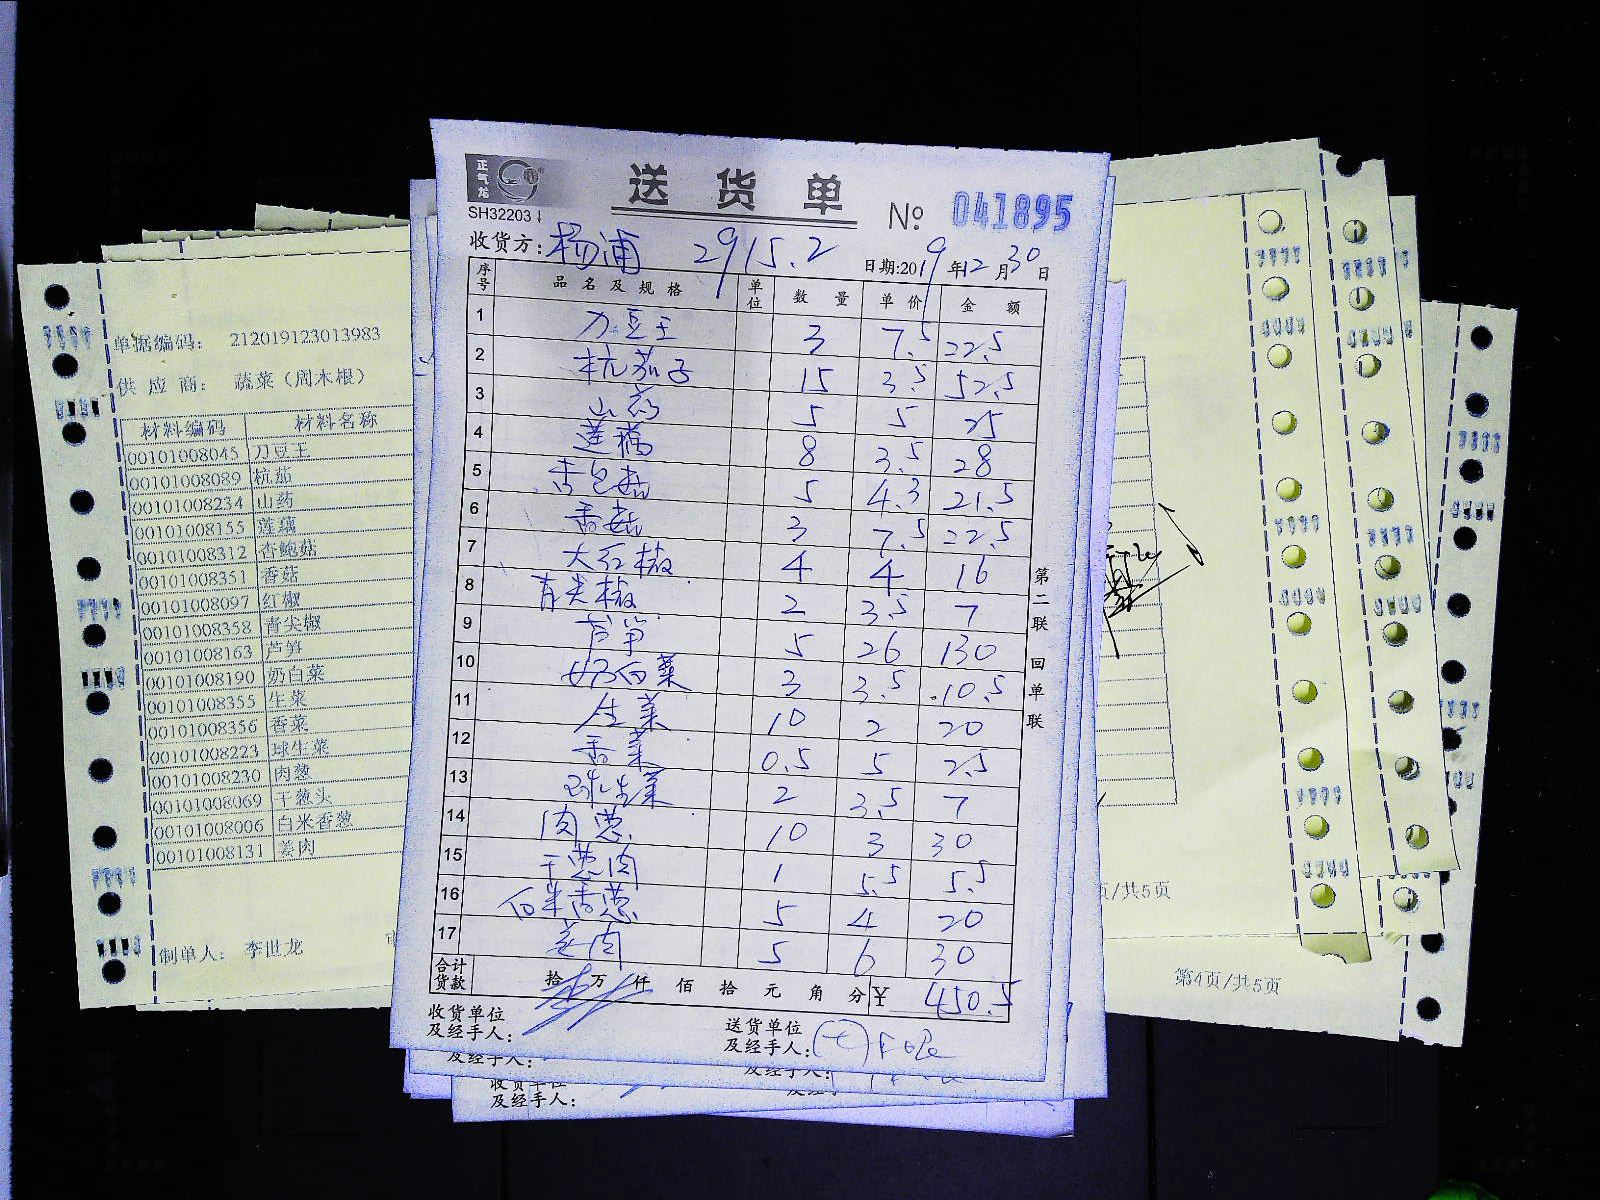 正气龙
送货单
SH32203
№ 041895
收货方：杨浦 2915.2 日期:2019年12月30日
序号 品名及规格 单位 数量 单价 金额
1 刀豆王 3 7.5 22.5
2 杭茄子 15 3.5 52.5
3 山药 5 5 25
4 莲藕 8 3.5 28
5 杏包菇 5 4.3 21.5
6 香菇 3 7.5 22.5
7 大红椒 4 4 16
8 青尖椒 2 3.5 7
9 芦笋 5 26 130
10 奶白菜 3 3.5 10.5
11 生菜 10 2 20
12 香菜 0.5 5 2.5
13 球生菜 2 3.5 7
14 肉葱 10 3 30
15 干葱肉 1 5.5 5.5
16 白米香葱 5 4 20
17 姜肉 5 6 30
合计货款 拾 万 仟 佰 拾 元 角 分 ¥ 450.5
收货单位及经手人：
送货单位及经手人：
第二联 回单联
及经手人：
及经手人：
收货单位
及经手人：
单据编码： 212019123013983
供应商： 蔬菜（周木根）
材料编码 材料名称
00101008045 刀豆王
00101008089 杭茄
00101008234 山药
00101008155 莲藕
00101008312 杏鲍菇
00101008351 香菇
00101008097 红椒
00101008358 青尖椒
00101008163 芦笋
00101008190 奶白菜
00101008355 生菜
00101008356 香菜
00101008223 球生菜
00101008230 肉葱
00101008069 干葱头
00101008006 白米香葱
00101008131 姜肉
制单人： 李世龙
页/共5页
第4页/共5页